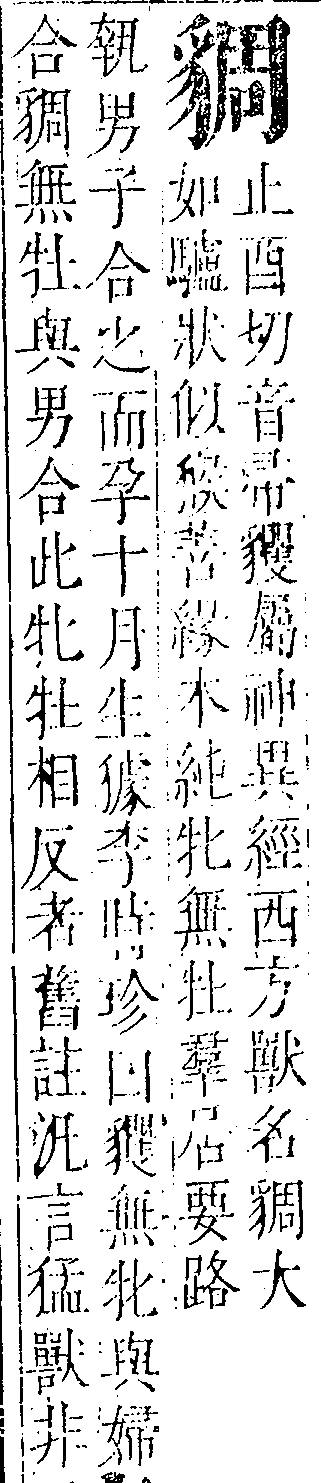 貂
止酉切音帚貜屬神異經西方獸名貂大
如驢狀似猴善緣木純牝無牡羣居要路
執男子合之而孕十月生獉李時珍曰貜無牝與婦
合貂無牡與男合此牝牡相反者舊註汎言猛獸非